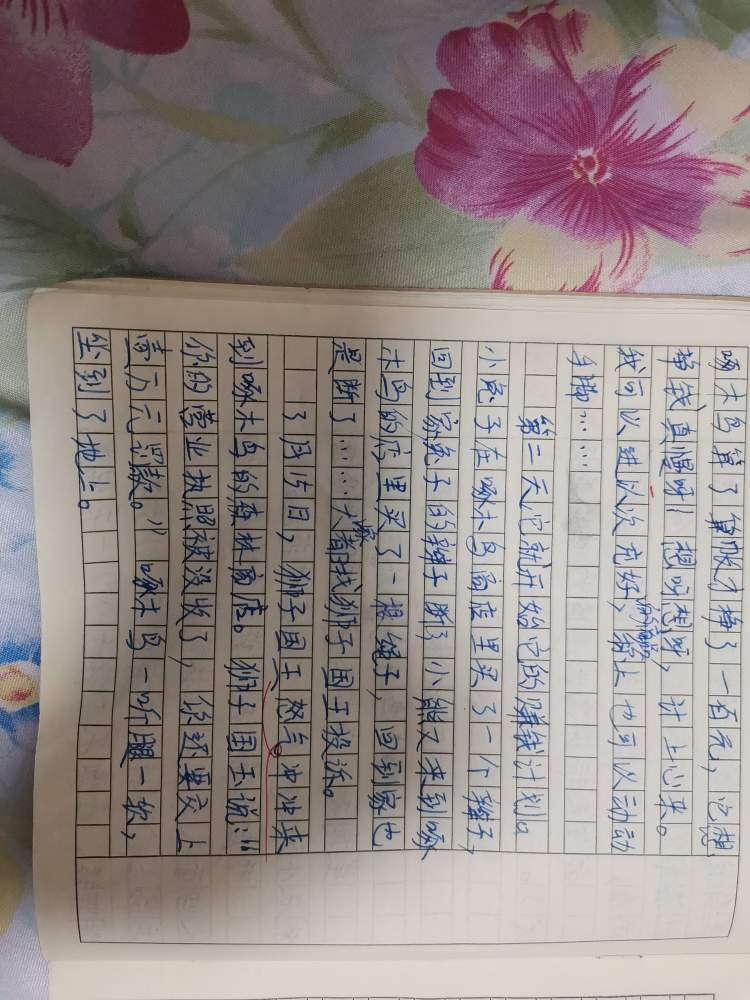 啄木鸟算了算账才挣了一百元，它想，
挣钱真慢呀！想呀想呀，计上心来。
我可以进以次充好，价格上也可以动动
手脚……
第二天它就开始它的赚钱计划。
小兔子在啄木鸟商店里买了一个辫子，
回到家兔子的辫子断了，小熊又来到啄
木鸟的店里买了一根绳子，回到家也
是断了……大家都找狮子国王投诉。
7月15日，狮子国王怒气冲冲来
到啄木鸟的森林商店。狮子国王说：“
你的营业执照被没收了，你还要交上
壹万元罚款。”啄木鸟一听腿一软，
坐到了地上。